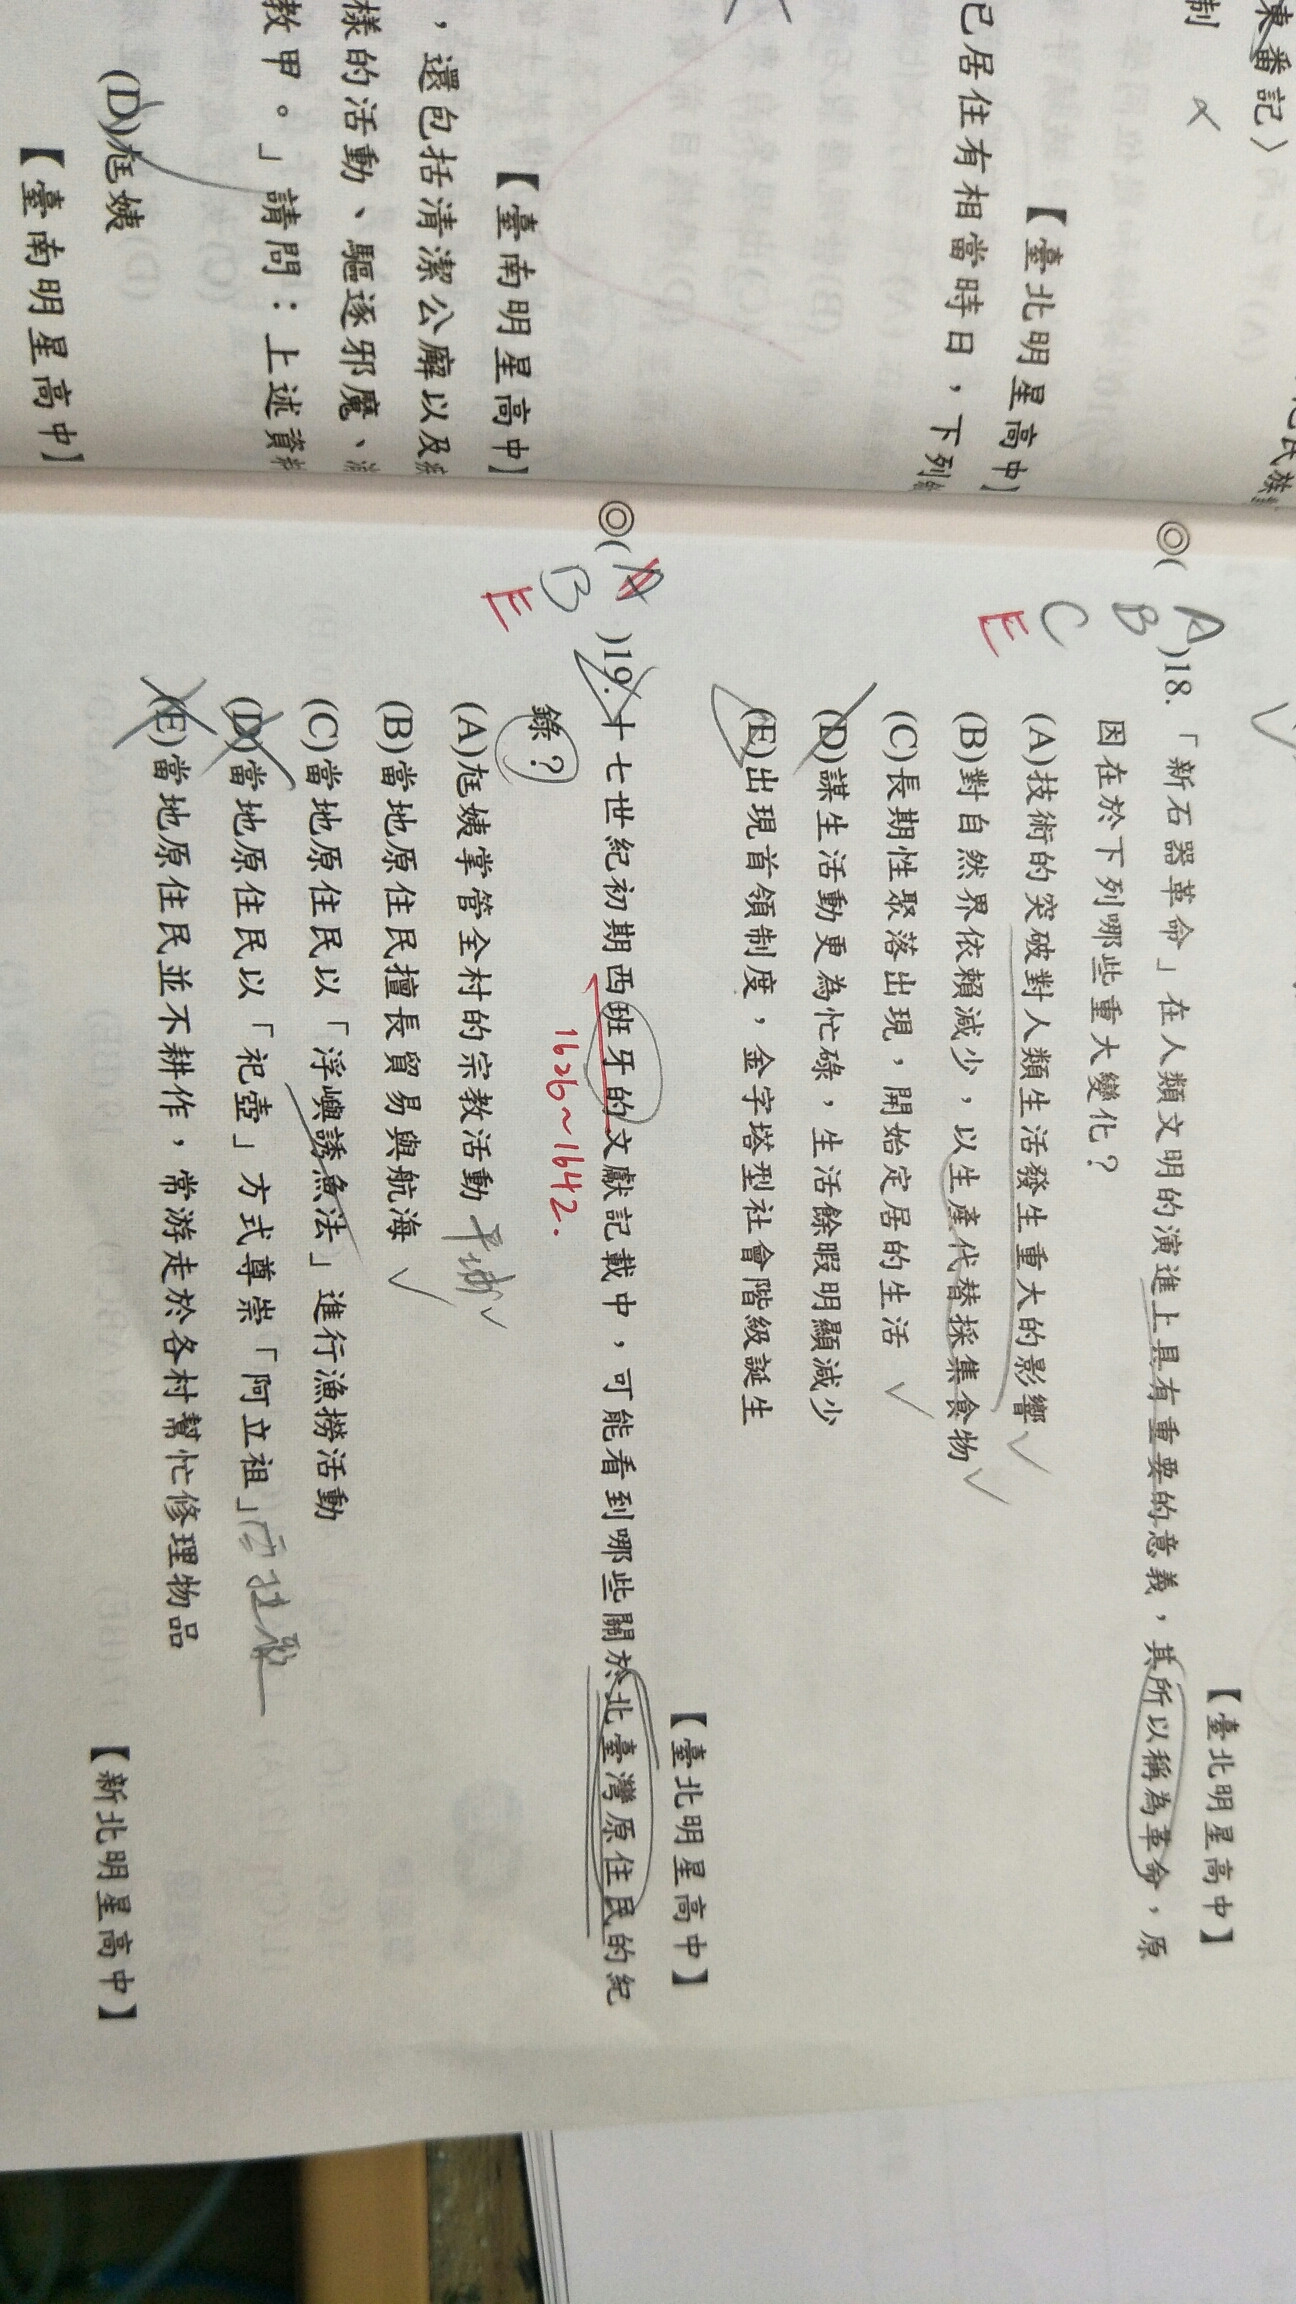 東番記〉
制
【臺北明星高中】
已居住有相當時日，下列
【臺南明星高中】
，還包括清潔公廨以及
樣的活動、驅逐邪魔、
教甲。」請問：上述資料
(D)尪姨
【臺南明星高中】
【臺北明星高中】
◎( A B C E )18.「新石器革命」在人類文明的演進上具有重要的意義，其所以稱為革命，原
因在於下列哪些重大變化？
(A)技術的突破對人類生活發生重大的影響
(B)對自然界依賴減少，以生產代替採集食物
(C)長期性聚落出現，開始定居的生活
(D)謀生活動更為忙碌，生活餘暇明顯減少
(E)出現首領制度，金字塔型社會階級誕生
【臺北明星高中】
◎( A B E )19.十七世紀初期西班牙的文獻記載中，可能看到哪些關於北臺灣原住民的紀
1626~1642.
錄？
(A)尪姨掌管全村的宗教活動
(B)當地原住民擅長貿易與航海
(C)當地原住民以「浮嶼誘魚法」進行漁撈活動
(D)當地原住民以「祀壺」方式尊崇「阿立祖」西拉雅
(E)當地原住民並不耕作，常游走於各村幫忙修理物品
【新北明星高中】